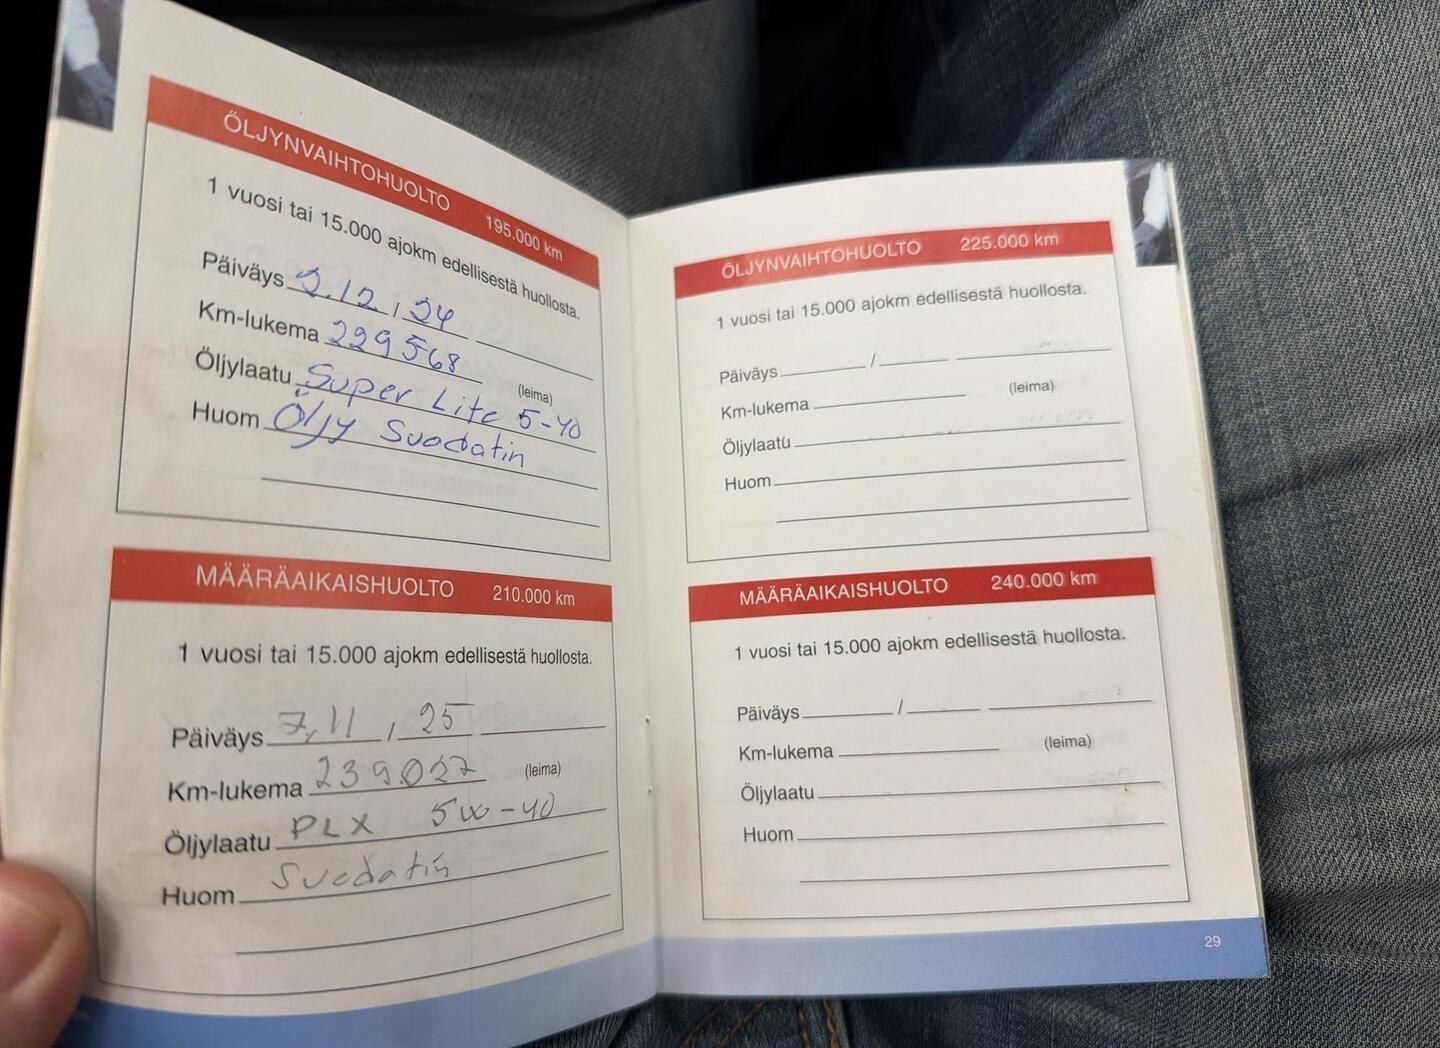 ÖLJYNVAIHTOHUOLTO 195.000 km
1 vuosi tai 15.000 ajokm edellisestä huollosta.
Päiväys 2.12 / 24
Km-lukema 229568
(leima)
Öljylaatu Super Lite 5-40
Huom Öljy Suodatin
MÄÄRÄAIKAISHUOLTO 210.000 km
1 vuosi tai 15.000 ajokm edellisestä huollosta.
Päiväys 7.11 / 25
Km-lukema 239027 (leima)
Öljylaatu PLX 5W-40
Huom Suodatin
ÖLJYNVAIHTOHUOLTO 225.000 km
1 vuosi tai 15.000 ajokm edellisestä huollosta.
Päiväys /
Km-lukema (leima)
Öljylaatu
Huom
MÄÄRÄAIKAISHUOLTO 240.000 km
1 vuosi tai 15.000 ajokm edellisestä huollosta.
Päiväys /
Km-lukema (leima)
Öljylaatu
Huom
29